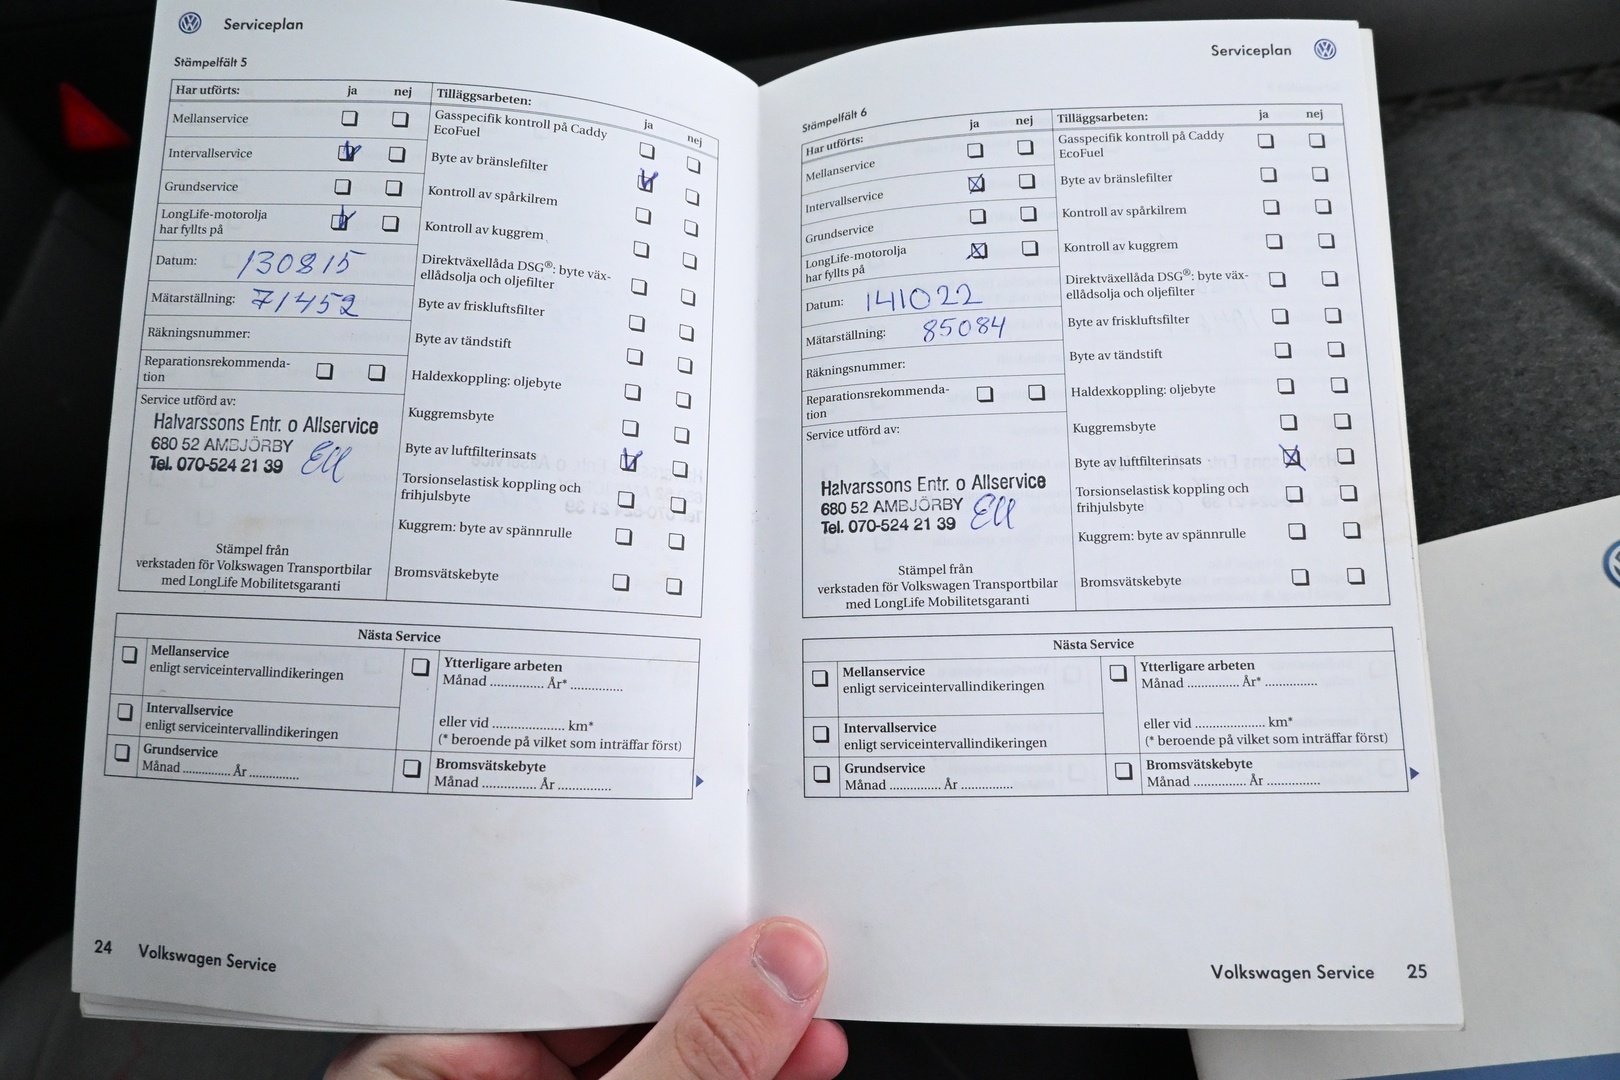 Serviceplan
Stämpelfält 5
Har utförts: ja nej
Mellanservice
Intervallservice
Grundservice
LongLife-motorolja
har fyllts på
Datum: 130815
Mätarställning: 71452
Räkningsnummer:
Reparationsrekommenda-
tion
Service utförd av:
Halvarssons Entr. o Allservice
680 52 AMBJÖRBY
Tel. 070-524 21 39
Stämpel från
verkstaden för Volkswagen Transportbilar
med LongLife Mobilitetsgaranti
Tilläggsarbeten:
ja nej
Gasspecifik kontroll på Caddy
EcoFuel
Byte av bränslefilter
Kontroll av spårkilrem
Kontroll av kuggrem
Direktväxellåda DSG®: byte väx-
ellådsolja och oljefilter
Byte av friskluftsfilter
Byte av tändstift
Haldexkoppling: oljebyte
Kuggremsbyte
Byte av luftfilterinsats
Torsionselastisk koppling och
frihjulsbyte
Kuggrem: byte av spännrulle
Bromsvätskebyte
Nästa Service
Mellanservice
enligt serviceintervallindikeringen
Intervallservice
enligt serviceintervallindikeringen
Grundservice
Månad .............. År ..............
Ytterligare arbeten
Månad .............. År* ..............
eller vid .................... km*
(* beroende på vilket som inträffar först)
Bromsvätskebyte
Månad .............. År ..............
24 Volkswagen Service
Serviceplan
Stämpelfält 6
Har utförts: ja nej
Mellanservice
Intervallservice
Grundservice
LongLife-motorolja
har fyllts på
Datum: 141022
Mätarställning: 85084
Räkningsnummer:
Reparationsrekommenda-
tion
Service utförd av:
Halvarssons Entr. o Allservice
680 52 AMBJÖRBY
Tel. 070-524 21 39
Stämpel från
verkstaden för Volkswagen Transportbilar
med LongLife Mobilitetsgaranti
Tilläggsarbeten: ja nej
Gasspecifik kontroll på Caddy
EcoFuel
Byte av bränslefilter
Kontroll av spårkilrem
Kontroll av kuggrem
Direktväxellåda DSG®: byte väx-
ellådsolja och oljefilter
Byte av friskluftsfilter
Byte av tändstift
Haldexkoppling: oljebyte
Kuggremsbyte
Byte av luftfilterinsats
Torsionselastisk koppling och
frihjulsbyte
Kuggrem: byte av spännrulle
Bromsvätskebyte
Nästa Service
Mellanservice
enligt serviceintervallindikeringen
Intervallservice
enligt serviceintervallindikeringen
Grundservice
Månad .............. År ..............
Ytterligare arbeten
Månad .............. År* ..............
eller vid .................... km*
(* beroende på vilket som inträffar först)
Bromsvätskebyte
Månad .............. År ..............
Volkswagen Service 25